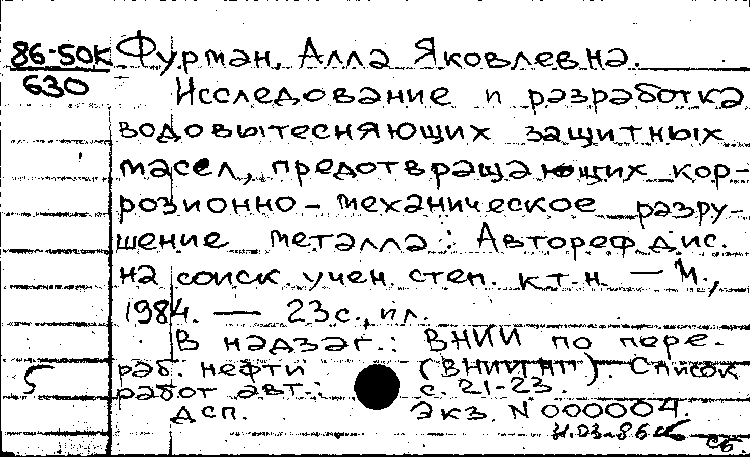 86-50К Фурман, Алла Яковлевна.
630
Исследование и разработка
водовытесняющих защитных
масел, предотвращающих кор-
розионно-механическое разру-
шение металла: Автореф. дис.
на соиск. учен. степ. к.т.н. — М.,
1984. — 23 с., ил.
В надзаг.: ВНИИ по пере-
раб. нефти (ВНИИНП). Список
5 работ авт.: с. 21-23.
ДСП. Экз. N 000004.
сб.